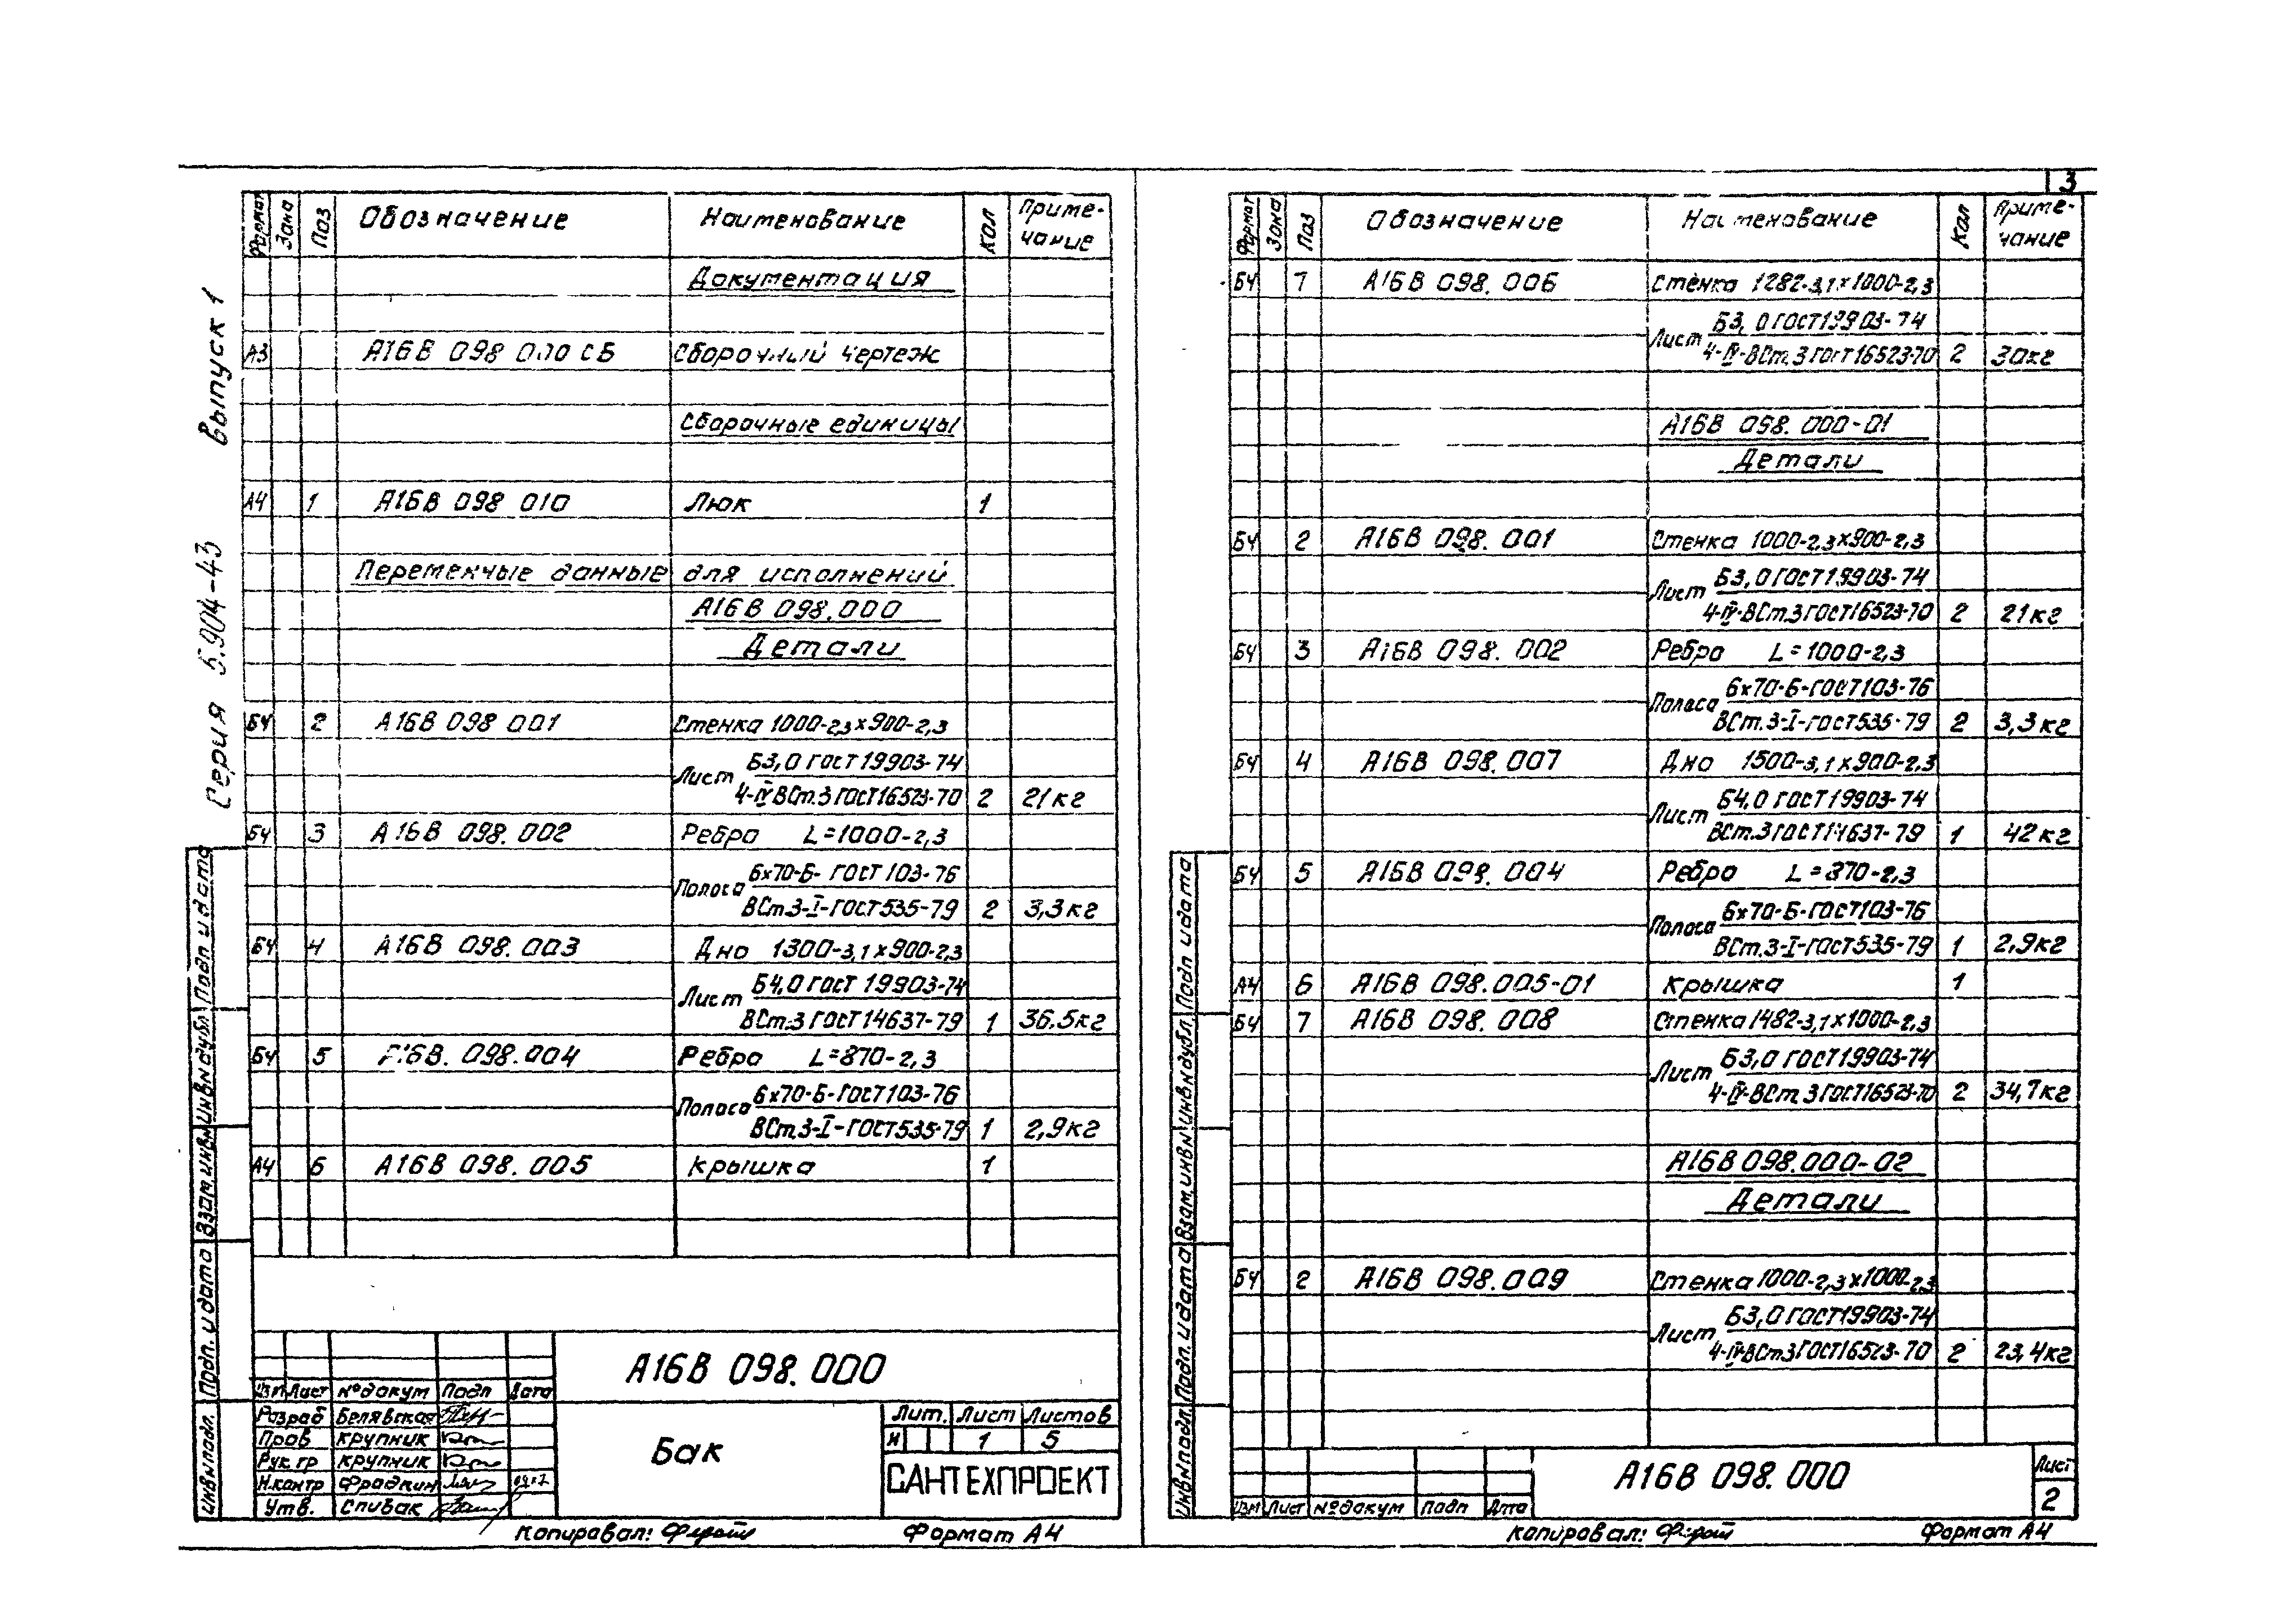 3
Серия 5.904-43 Выпуск 1
Формат Зона Поз Обозначение Наименование Кол Приме-
чание
Документация
А3 А16В 098 000 СБ Сборочный чертеж
Сборочные единицы
А4 1 А16В 098 010 Люк 1
Переменные данные для исполнений
А16В 098.000
Детали
БЧ 2 А16В 098 001 Стенка 1000-2,3х900-2,3
Лист Б3,0 ГОСТ 19903-74
4-IV ВСт.3 ГОСТ 16523-70 2 21кг
БЧ 3 А16В 098.002 Ребро L=1000-2,3
Полоса 6х70-Б- ГОСТ 103-76
ВСт3-I-ГОСТ535-79 2 3,3кг
БЧ 4 А16В 098.003 Дно 1300-3,1х900-2,3
Лист Б4,0 ГОСТ 19903-74
ВСт.3 ГОСТ 14637-79 1 36.5кг
БЧ 5 А16В. 098.004 Ребро L=870-2,3
Полоса 6х70-Б-ГОСТ103-76
ВСт3-I-ГОСТ535-79 1 2,9кг
А4 6 А16В 098.005 Крышка 1
А16В 098.000
Изм Лист № докум Подп Дата
Разраб Белявская
Пров Крупник
Рук.гр Крупник
Н.контр Фрадкин
Утв. Спивак
Бак
Лит. Лист Листов
И 1 5
САНТЕХПРОЕКТ
Копировал: Формат А4
Инв.№подл. Подп. и дата Взам.инв.№ Инв.№дубл Подп и дата
Формат Зона Поз Обозначение Наименование Кол Приме-
чание
БЧ 7 А16В 098. 006 Стенка 1282-3,1х1000-2,3
Лист Б3,0 ГОСТ19903-74
4-IV-ВСт.3 ГОСТ16523-70 2 30кг
А16В 098.000-01
Детали
БЧ 2 А16В 098. 001 Стенка 1000-2,3х900-2,3
Лист Б3,0 ГОСТ19903-74
4-IV-ВСт.3 ГОСТ16523-70 2 21кг
БЧ 3 А16В 098. 002 Ребро L=1000-2,3
Полоса 6х70-Б-ГОСТ103-76
ВСт.3-I-ГОСТ535-79 2 3,3кг
БЧ 4 А16В 098.007 Дно 1500-3,1х900-2,3
Лист Б4,0 ГОСТ19903-74
ВСт.3 ГОСТ14637-79 1 42кг
БЧ 5 А16В 098. 004 Ребро L=870-2,3
Полоса 6х70-Б-ГОСТ103-76
ВСт.3-I-ГОСТ535-79 1 2,9кг
А4 6 А16В 098.005-01 Крышка 1
БЧ 7 А16В 098.008 Стенка 1482-3,1х1000-2,3
Лист Б3,0 ГОСТ19903-74
4-IV-ВСт.3 ГОСТ16523-70 2 34,7кг
А16В 098.000-02
Детали
БЧ 2 А16В 098.009 Стенка 1000-2,3х1000-2,3
Лист Б3,0 ГОСТ19903-74
4-IV-ВСт3 ГОСТ16523-70 2 23,4кг
Изм Лист № докум Подп Дата
А16В 098.000
Лист
2
Копировал: Формат А4
Инв.№подл. Подп. и дата Взам.инв.№ Инв.№дубл. Подп и дата